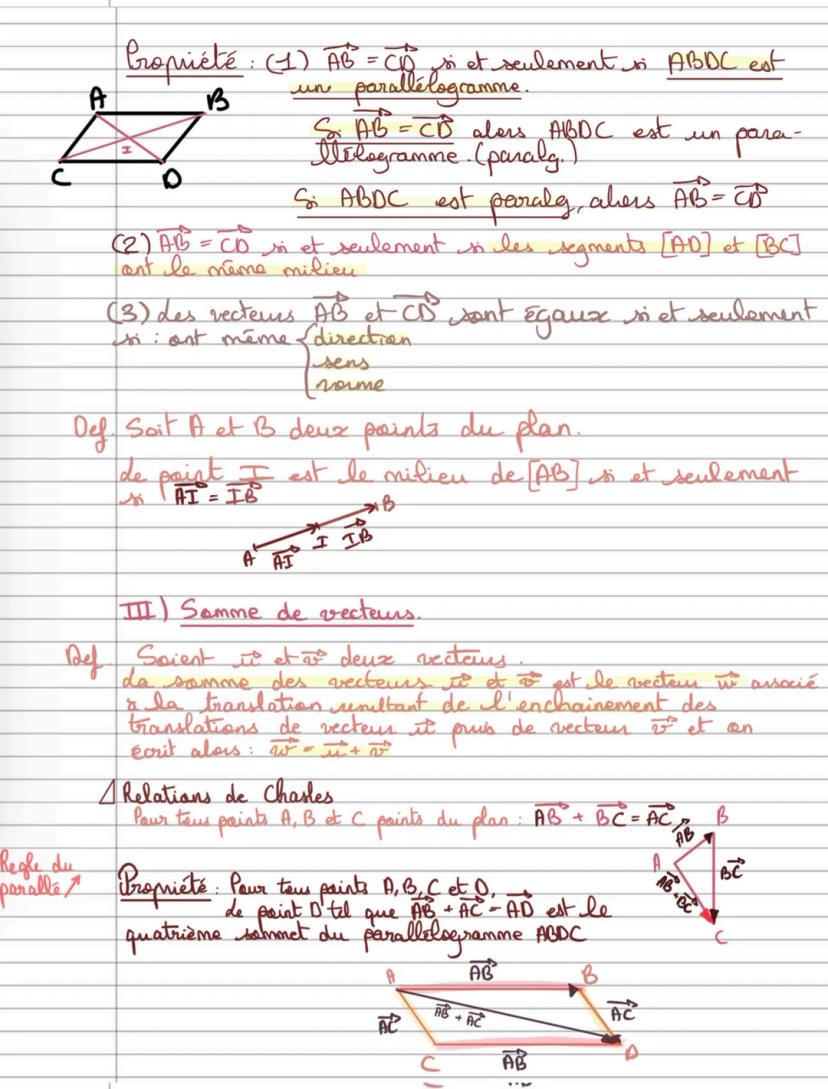 Propriété : (1) AB = CD si et seulement si ABDC est
un parallélogramme.
A B
Si AB = CD alors ABDC est un para-
llélogramme. (paralg.)
I
C D
Si ABDC est paralg, alors AB = CD
(2) AB = CD si et seulement si les segments [AD] et [BC]
ont le même milieu
(3) Les vecteurs AB et CD sont égaux si et seulement
si : ont même { direction
sens
norme
Def. Soit A et B deux points du plan.
Le point I est le milieu de [AB] si et seulement
si AI = IB
B
I IB
A AI
III) Somme de vecteurs.
Def Soient u et v deux vecteurs.
La somme des vecteurs u et v est le vecteur w associé
à la translation résultant de l'enchainement des
translations de vecteur u puis de vecteur v et on
écrit alors : w = u + v
Relations de Chasles
Pour tous points A, B et C points du plan : AB + BC = AC
B
AB
A
BC
AB + BC
C
Regle du
parallé
Propriété : Pour tous points A, B, C et D,
Le point D tel que AB + AC = AD est le
quatrième sommet du parallélogramme ABDC
AB
A B
AC AB + AC AC
C AB D